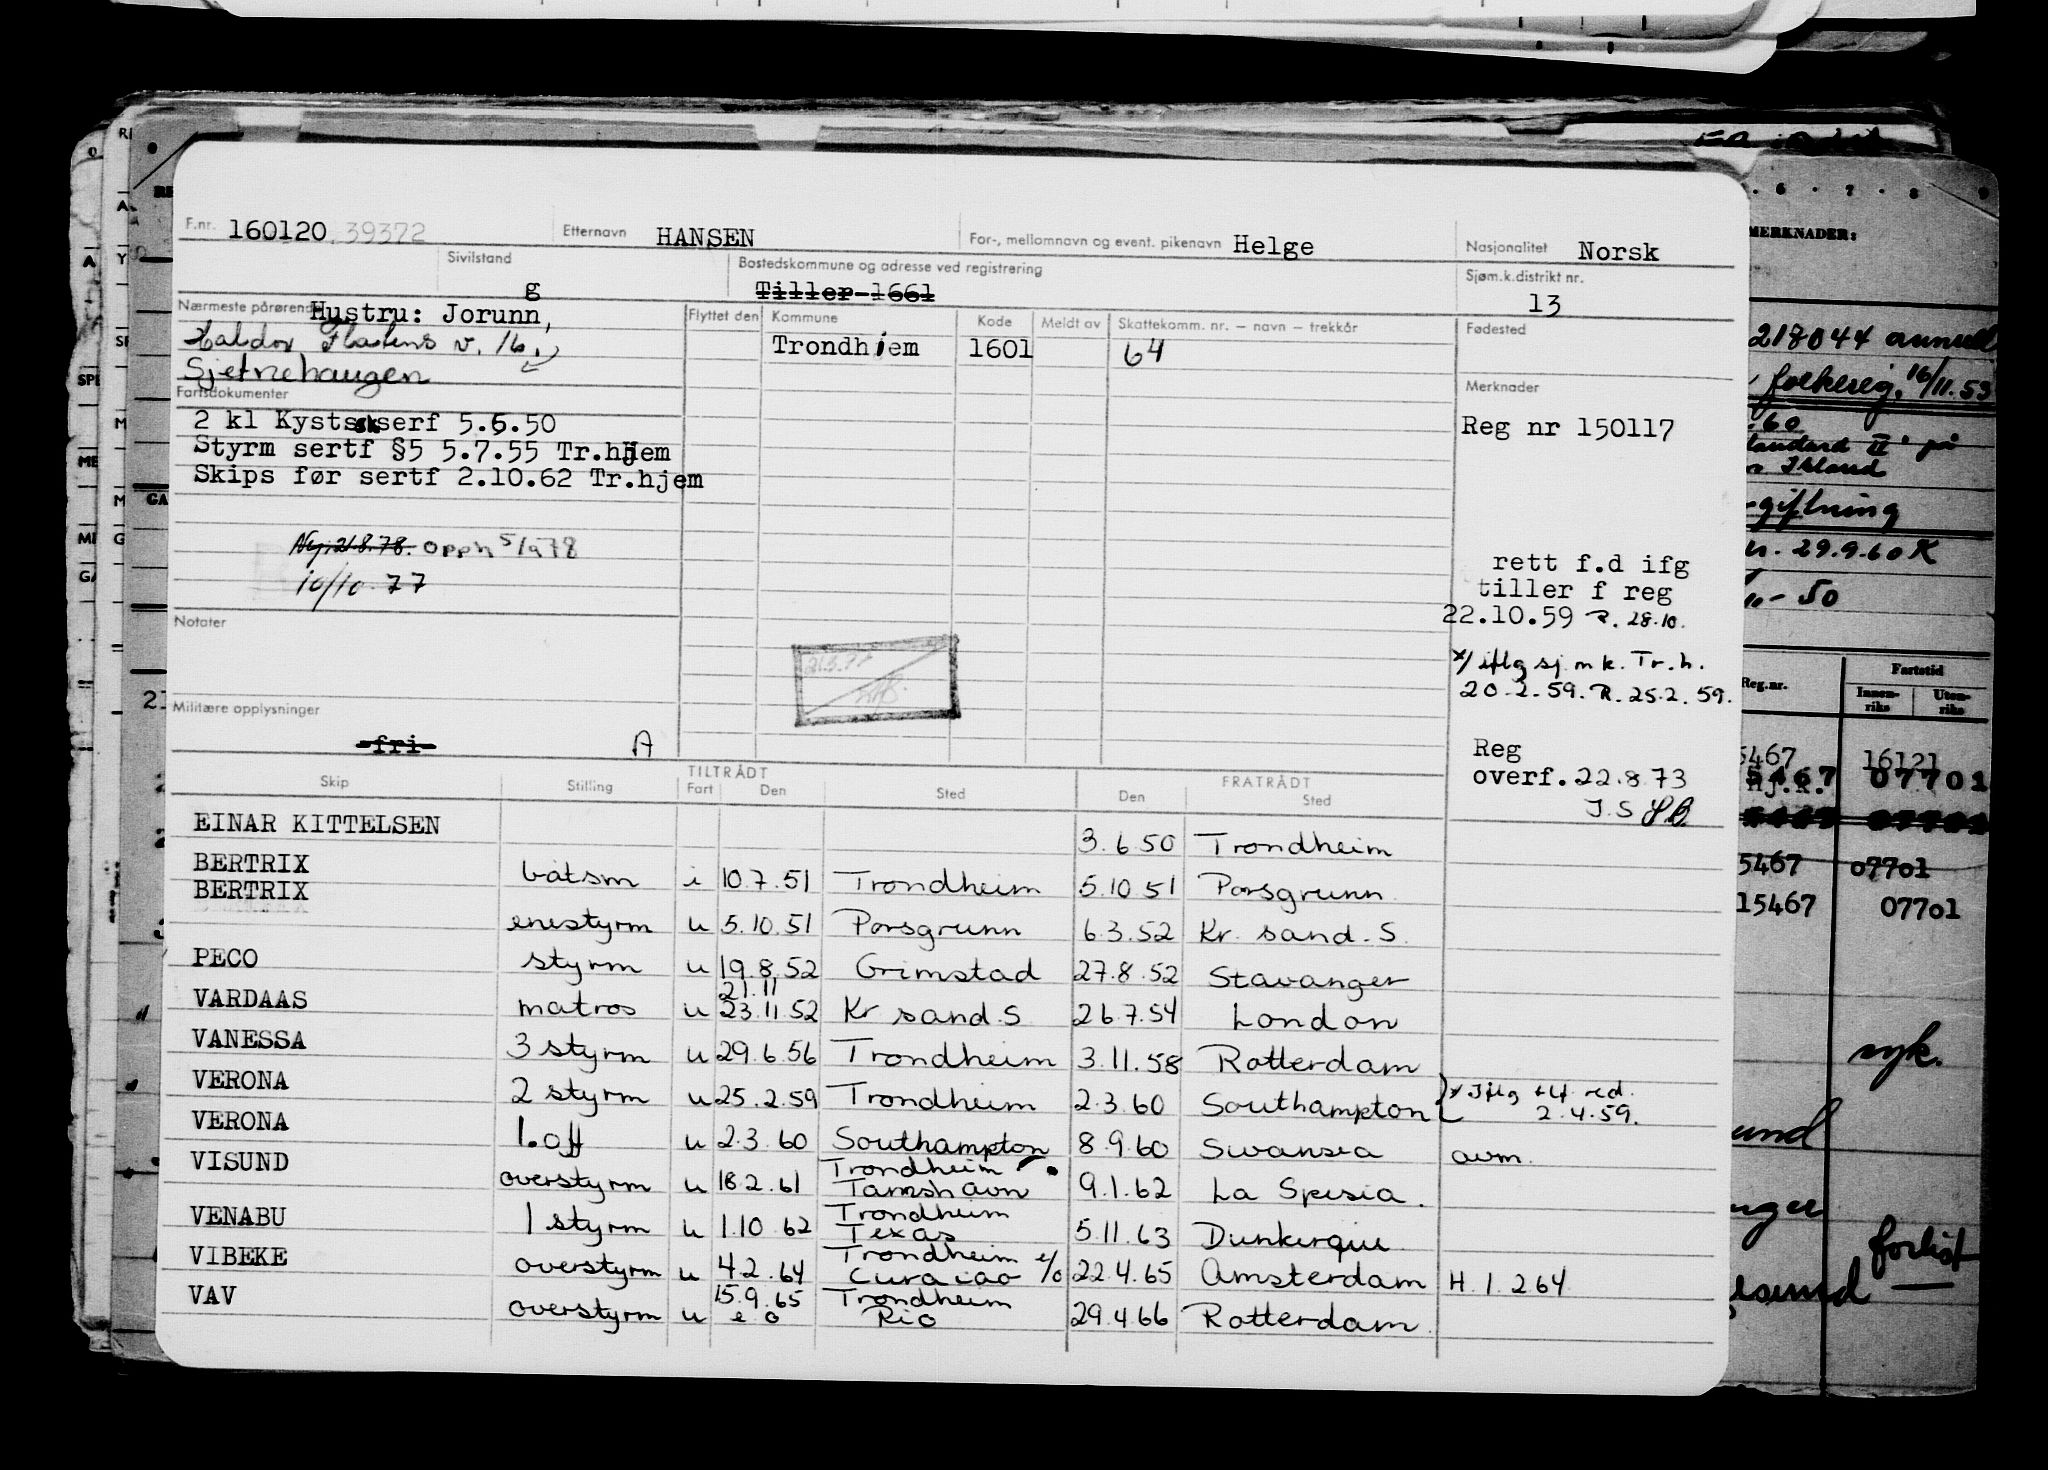 F.nr. 160120 39372 Etternavn HANSEN For-, mellomnavn og event. pikenavn Helge Nasjonalitet Norsk
Sivilstand g Bostedskommune og adresse ved registrering Tiller-1661 Sjøm.k.distrikt nr. 13
Nærmeste pårørende Hustru: Jorunn, Flyttet den Kommune Kode Meldt av Skattekomm. nr. – navn – trekkår Fødested
v. 16. Trondhiem 1601 64
Sjetnehaugen
Fartsdokumenter Merknader
2 kl Kystsskserf 5.5.50 Reg nr 150117
Styrm sertf §5 5.7.55 Tr.hjem
Skips før sertf 2.10.62 Tr.hjem
Ny: 21.8.78. opph 5/9 78
10/10.77
rett f.d ifg
tiller f reg
22.10.59 R. 28.10.
Notater
x/ iflg sj.m k. Tr.h.
20.2.59. R. 25.2.59.
Militære opplysninger
fri A
Reg
overf. 22.8.73
J.S
Skip Stilling TILTRÅDT Fart Den Sted FRATRÅDT Den Sted
EINAR KITTELSEN 3.6.50 Trondheim
BERTRIX båtsm i 10.7.51 Trondheim 5.10 51 Porsgrunn
BERTRIX enestyrm u 5.10.51 Porsgrunn 6.3.52 Kr. sand. S.
PECO styrm u 19.8.52 Grimstad 27.8.52 Stavanger
21.11
VARDAAS matros u 23.11.52 Kr sand S 26.7.54 London
VANESSA 3 styrm u 29.6.56 Trondheim 3.11.58 Rotterdam
VERONA 2 styrm u 25.2.59 Trondheim 2.3.60 Southampton x Iflg tlf red.
2.4.59.
VERONA 1. off u 2.3.60 Southampton 8.9.60 Swansea avm.
VISUND overstyrm u 18.2.61 Trondheim Tamshavn 9.1.62 La Spesia.
VENABU 1 styrm u 1.10.62 Trondheim Texas 5.11.63 Dunkerque
VIBEKE overstyrm u 4.2.64 Trondheim Curacao e/o 22.4.65 Amsterdam H. 1.2 64
VAV overstyrm u 15.9.65 e o Trondheim Rio 29.4.66 Rotterdam.
MERKNADER:
218044
folkereg. 16/11.53
Island
29.9.60 K
50
Reg.nr. Fartstid
Innenriks Utenriks
5467 16121
5467 07701
5467 07701
15467 07701
syk.
forlist